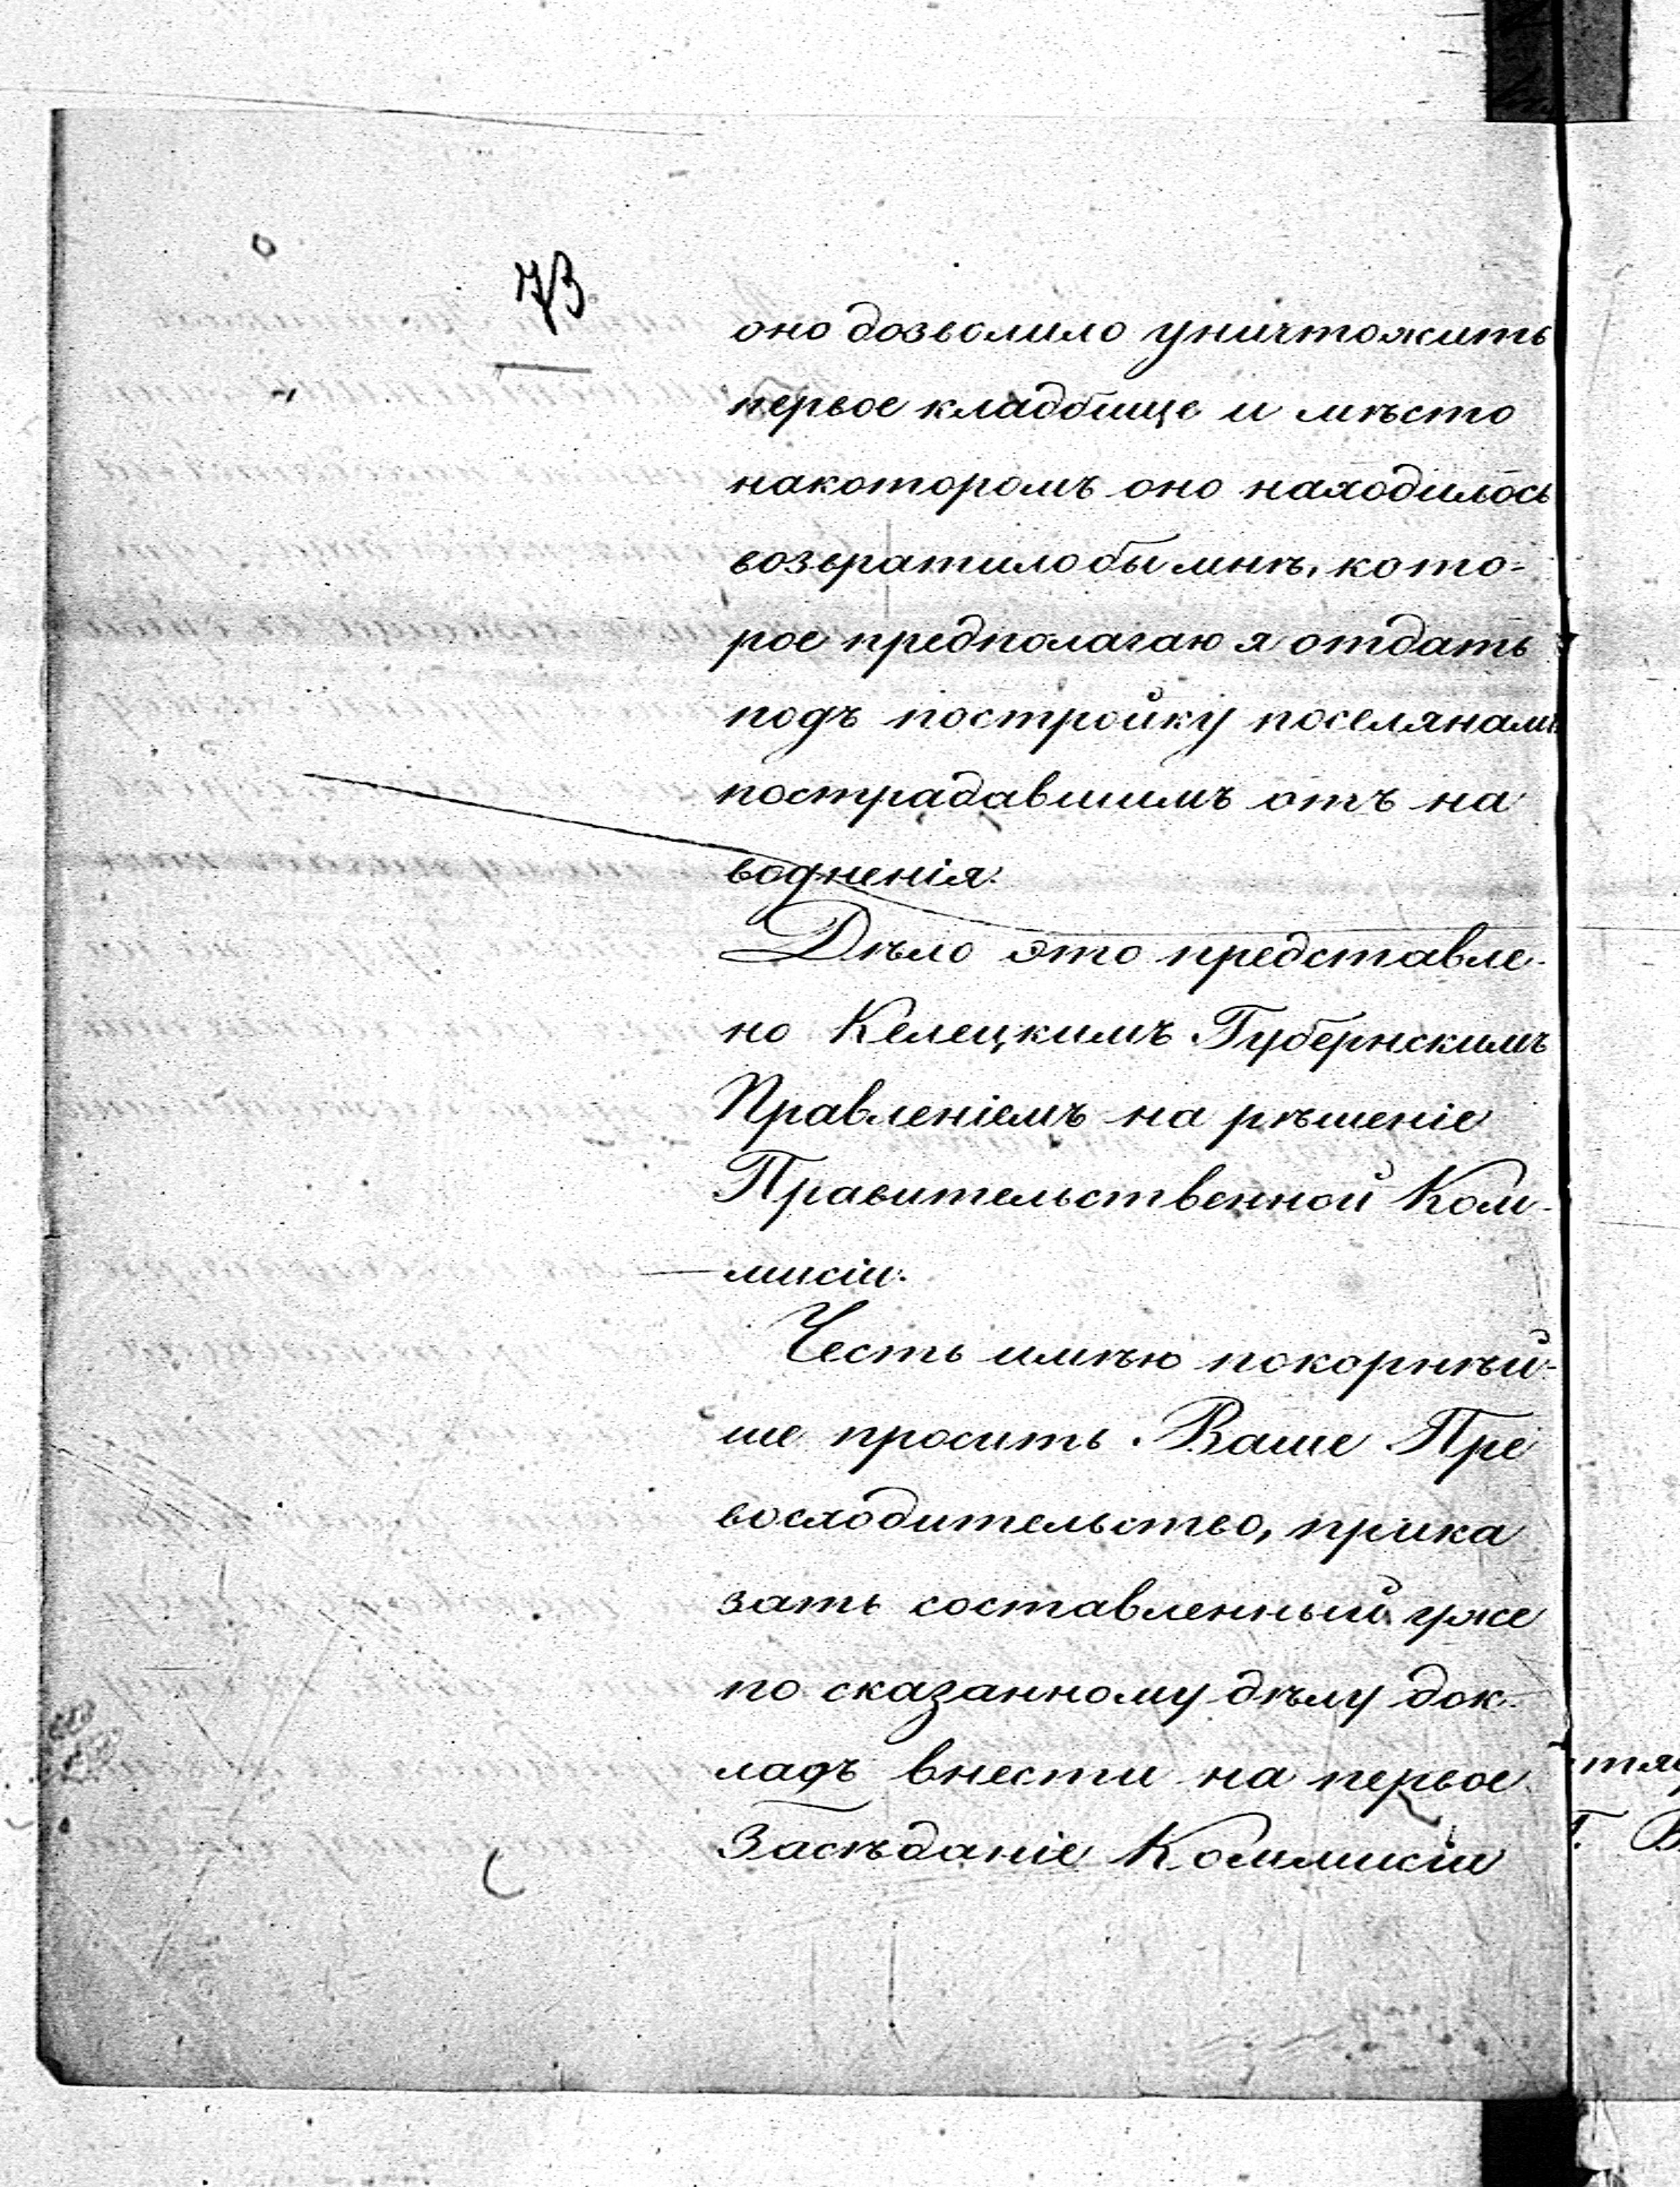 73
оно дозволило уничтожить
первое кладбище и мѣсто
накоторомъ оно находилось
возвратило бы мнѣ, кото-
рое предполагаю я отдать
подъ постройку поселянамъ
пострадавшимъ отъ на
водненія.
Дѣло это представле-
но Келецкимъ Губернскимъ
Правленіемъ на рѣшеніе
Правительственной Ком-
мисіи.
Честь имѣю покорнѣй-
ше просить Ваше Пре
восходительство, прика
зать составленный уже
по сказанному дѣлу док-
ладъ внести на первое
Засѣданіе Коммисіи